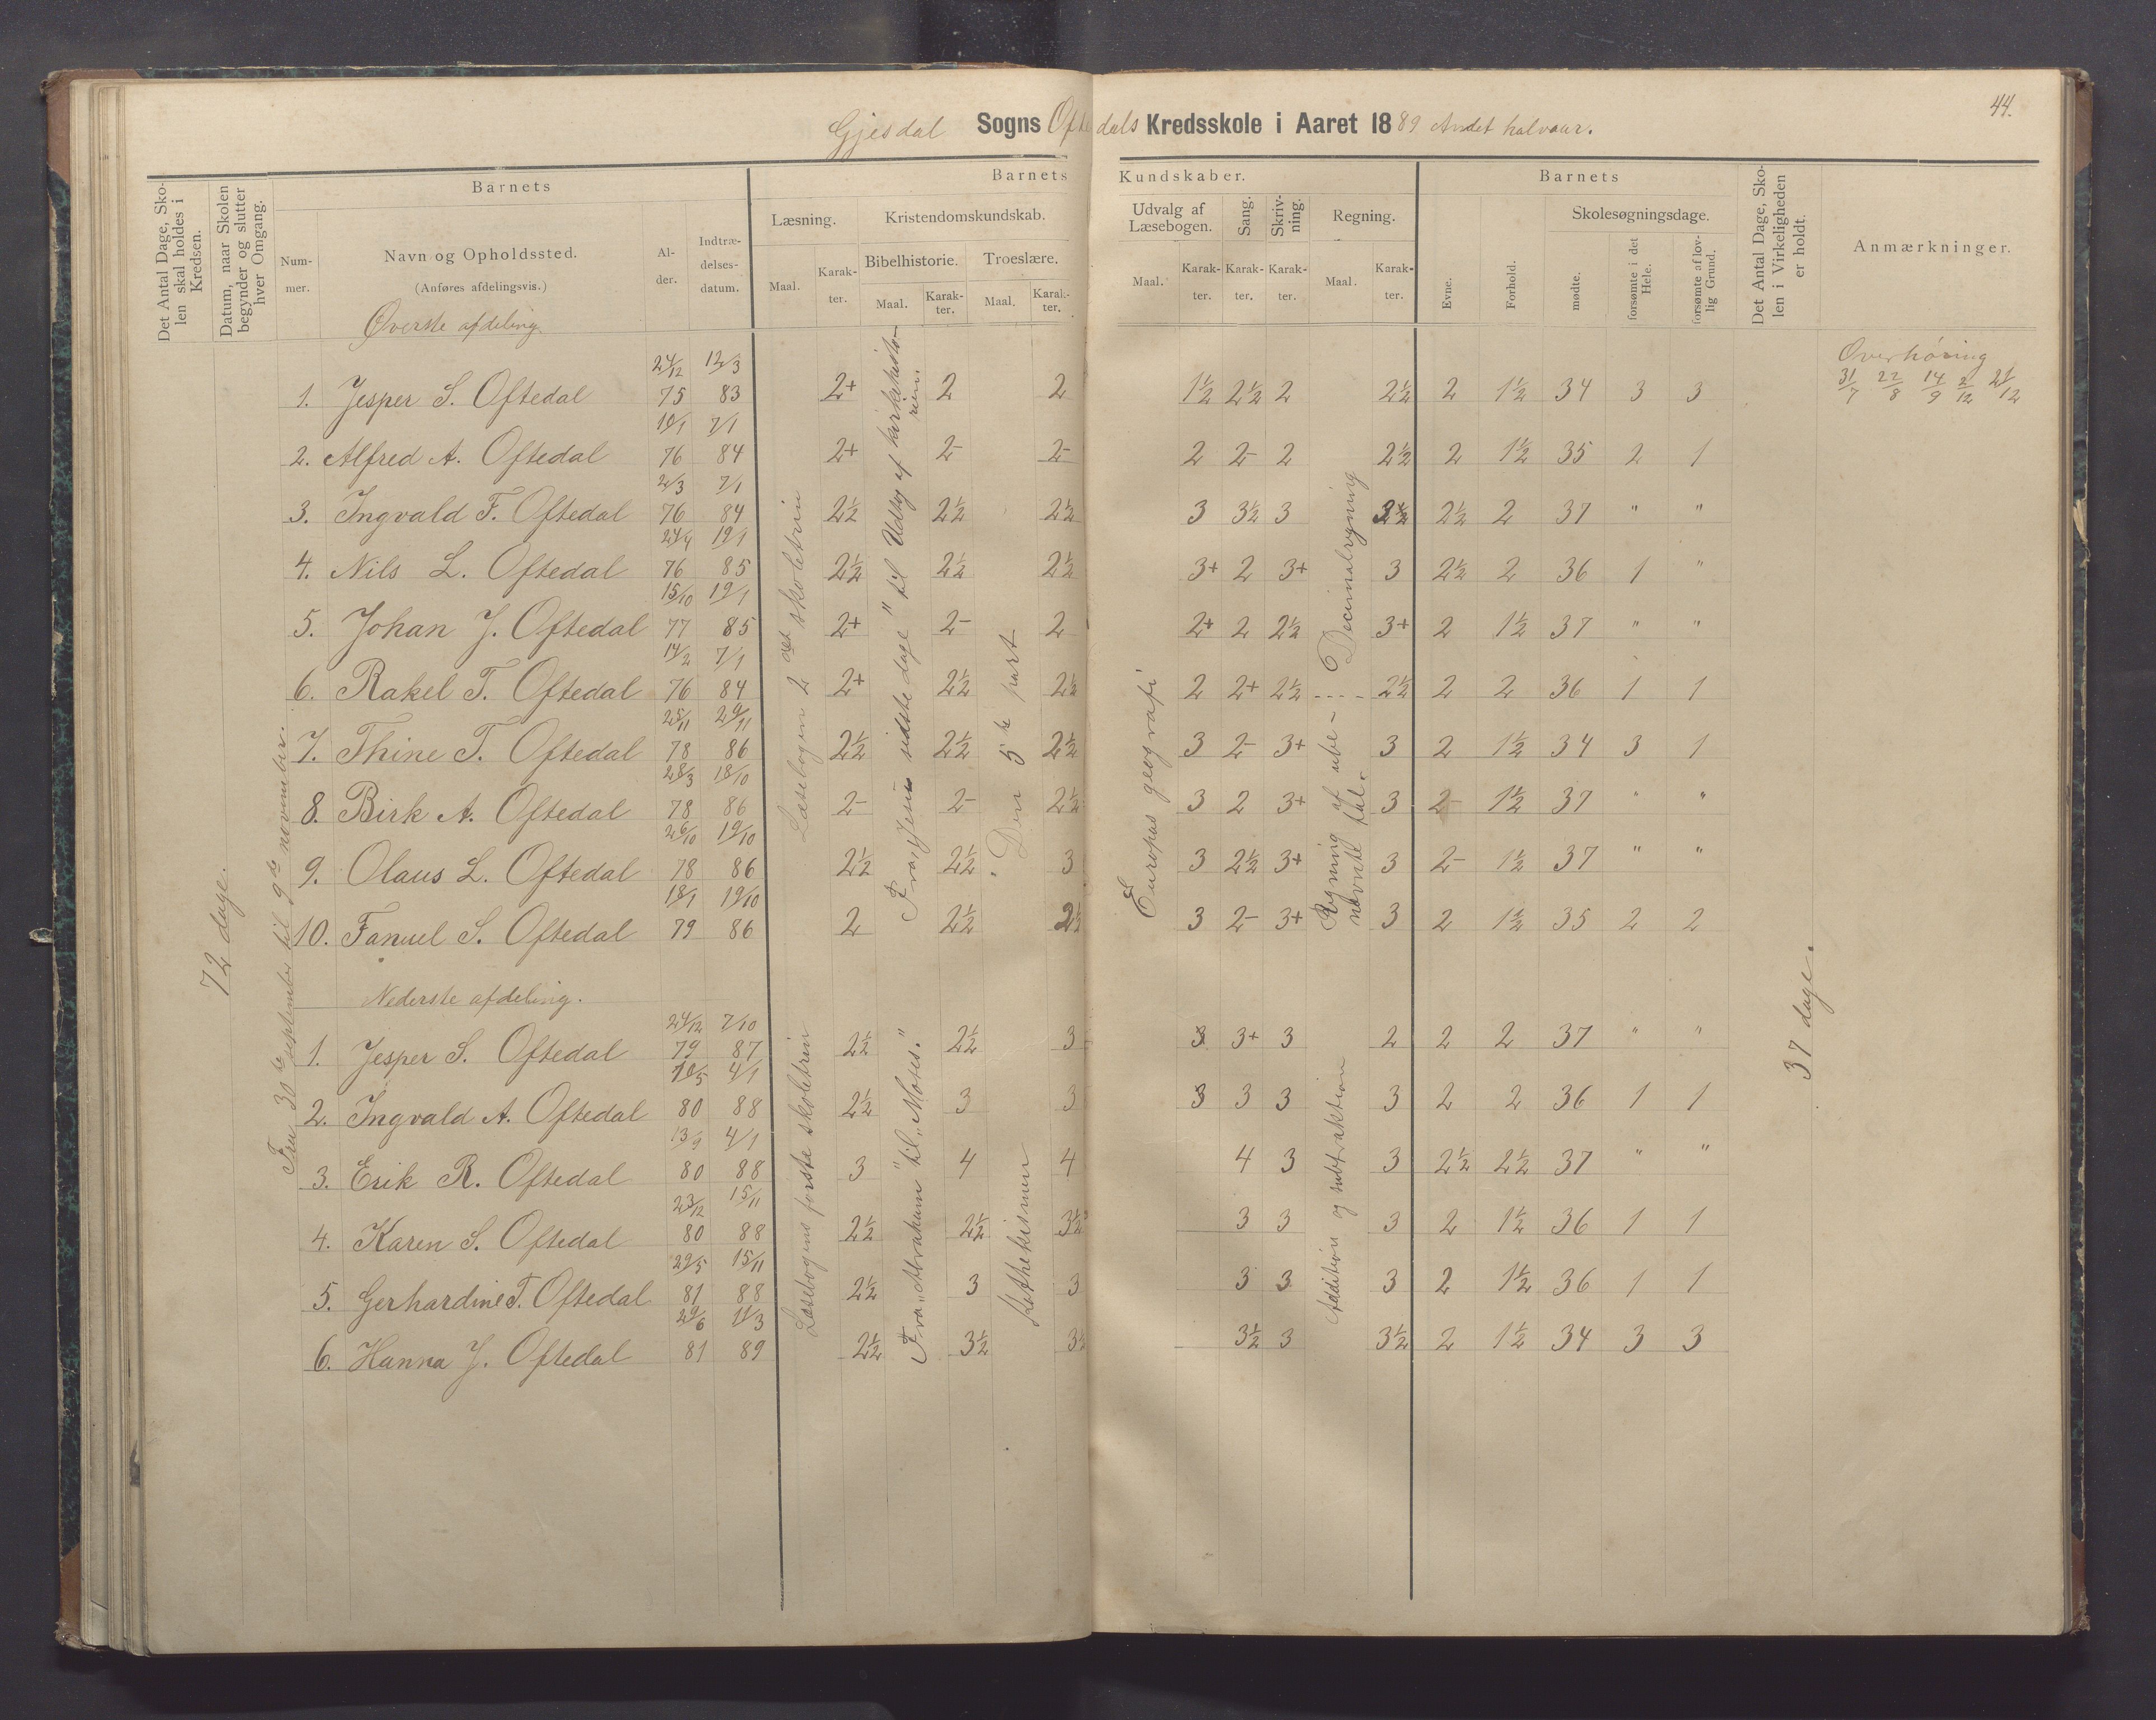 44.
Gjesdal Sogns Oftedals Kredsskole i Aaret 1889 Andet halvaar.
Det Antal Dage, Skolen skal holdes i Kredsen.
Datum, naar Skolen begynder og slutter hver Omgang.
Barnets
Nummer.
Navn og Opholdssted.
(Anføres afdelingsvis.)
Alder.
Indtrædelsesdatum.
Barnets Kundskaber.
Læsning.
Maal. Karakter.
Kristendomskundskab.
Bibelhistorie. Troeslære.
Maal. Karakter. Maal. Karakter.
Udvalg af Læsebogen.
Maal. Karakter.
Sang. Karakter.
Skrivning. Karakter.
Regning.
Maal. Karakter.
Barnets
Evne. Forhold.
Skolesøgningsdage.
mødte. forsømte i det Hele. forsømte af lovlig Grund.
Det Antal Dage, Skolen i Virkeligheden er holdt.
Anmærkninger.
Øverste afdeling.
Overhøring
31/7 22/8 14/9 2/12 21/12
72 dage.
Fra 30te september til 9de november.
1. Jesper S. Oftedal 24/12 75 12/3 83 2+ 2 2 1½ 2½ 2 2½ 2 1½ 34 3 3
2. Alfred A. Oftedal 10/1 76 7/1 84 2+ 2- 2- 2 2- 2 2½ 2 1½ 35 2 1
3. Ingvald F. Oftedal 2/3 76 7/1 84 2½ 2½ 2½ 3 3½ 3 2½ 2½ 2 37 " "
4. Nils L. Oftedal 24/4 76 19/1 85 2½ 2½ 2½ 3+ 2 3+ 3 2½ 2 36 1 "
5. Johan J. Oftedal 15/10 77 19/1 85 2+ 2- 2 2+ 2 2½ 3+ 2 1½ 37 " "
6. Rakel T. Oftedal 14/2 76 7/1 84 2+ 2½ 2½ 2 2+ 2½ 2½ 2 2 36 1 1
7. Thine T. Oftedal 25/11 78 29/11 86 2½ 2½ 2½ 3 2- 3+ 3 2 1½ 34 3 1
8. Birk A. Oftedal 28/3 78 18/10 86 2- 2- 2½ 3 2 3+ 3 2- 1½ 37 " "
9. Olaus L. Oftedal 26/10 78 19/10 86 2½ 2½ 3 3 2½ 3+ 3 2- 1½ 37 " "
10. Fanuel S. Oftedal 18/1 79 19/10 86 2 2½ 2½ 3 2- 3+ 3 2 1½ 35 2 2
Læsebogen 2det skoletrin
Fra "Jesu sidste dage" til Udtog af kirkehistorien.
Den 5te part
Europas geografi
Regning af ubenævnte tal. ---- Decimalregning
37 dage.
Nederste afdeling.
1. Jesper S. Oftedal 24/12 79 7/10 87 2½ 2½ 3 3 3+ 3 2 2 2 37 " "
2. Ingvald A. Oftedal 10/5 80 4/1 88 2½ 3 3 3 3 3 3 2 2 36 1 1
3. Erik R. Oftedal 13/9 80 4/1 88 3 4 4 4 3 3 2½ 2½ 37 " "
4. Karen S. Oftedal 23/12 80 15/11 88 2½ 2½ 3½ 3 3 3 2 1½ 36 1 1
5. Gerhardine T. Oftedal 29/5 81 15/11 88 2½ 3 3 3 3 3 2 1½ 36 1 1
6. Hanna J. Oftedal 29/6 81 11/3 89 2½ 3½ 3½ 3½ 3 3½ 2 1½ 34 3 3
Læsebogens første skoletrin
Fra "Abraham" til "Moses."
Addition og subtraktion